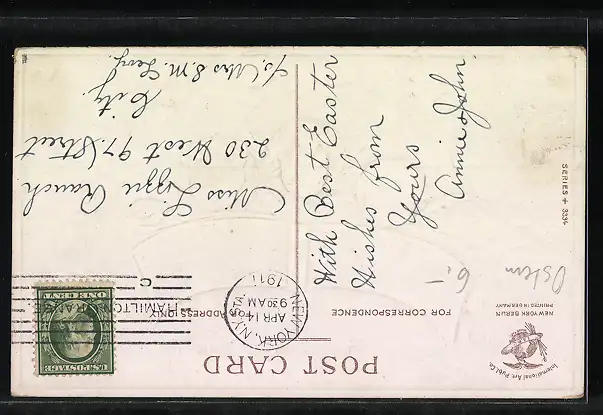 POST CARD
FOR CORRESPONDENCE
FOR ADDRESS ONLY
NEW YORK, N.Y. STA
APR 14
9 30 AM
1911
HAMILTON
GRANGE
C
U.S. POSTAGE
ONE CENT
International Art. Publ. Co.
NEW YORK BERLIN
PRINTED IN GERMANY
SERIES + 3334
Ostern
6.-
With Best Easter
Wishes from
Yours
Annie & John.
Miss Lizzie Rauch
230 West 97 Street
City.
To, Mrs S. M.